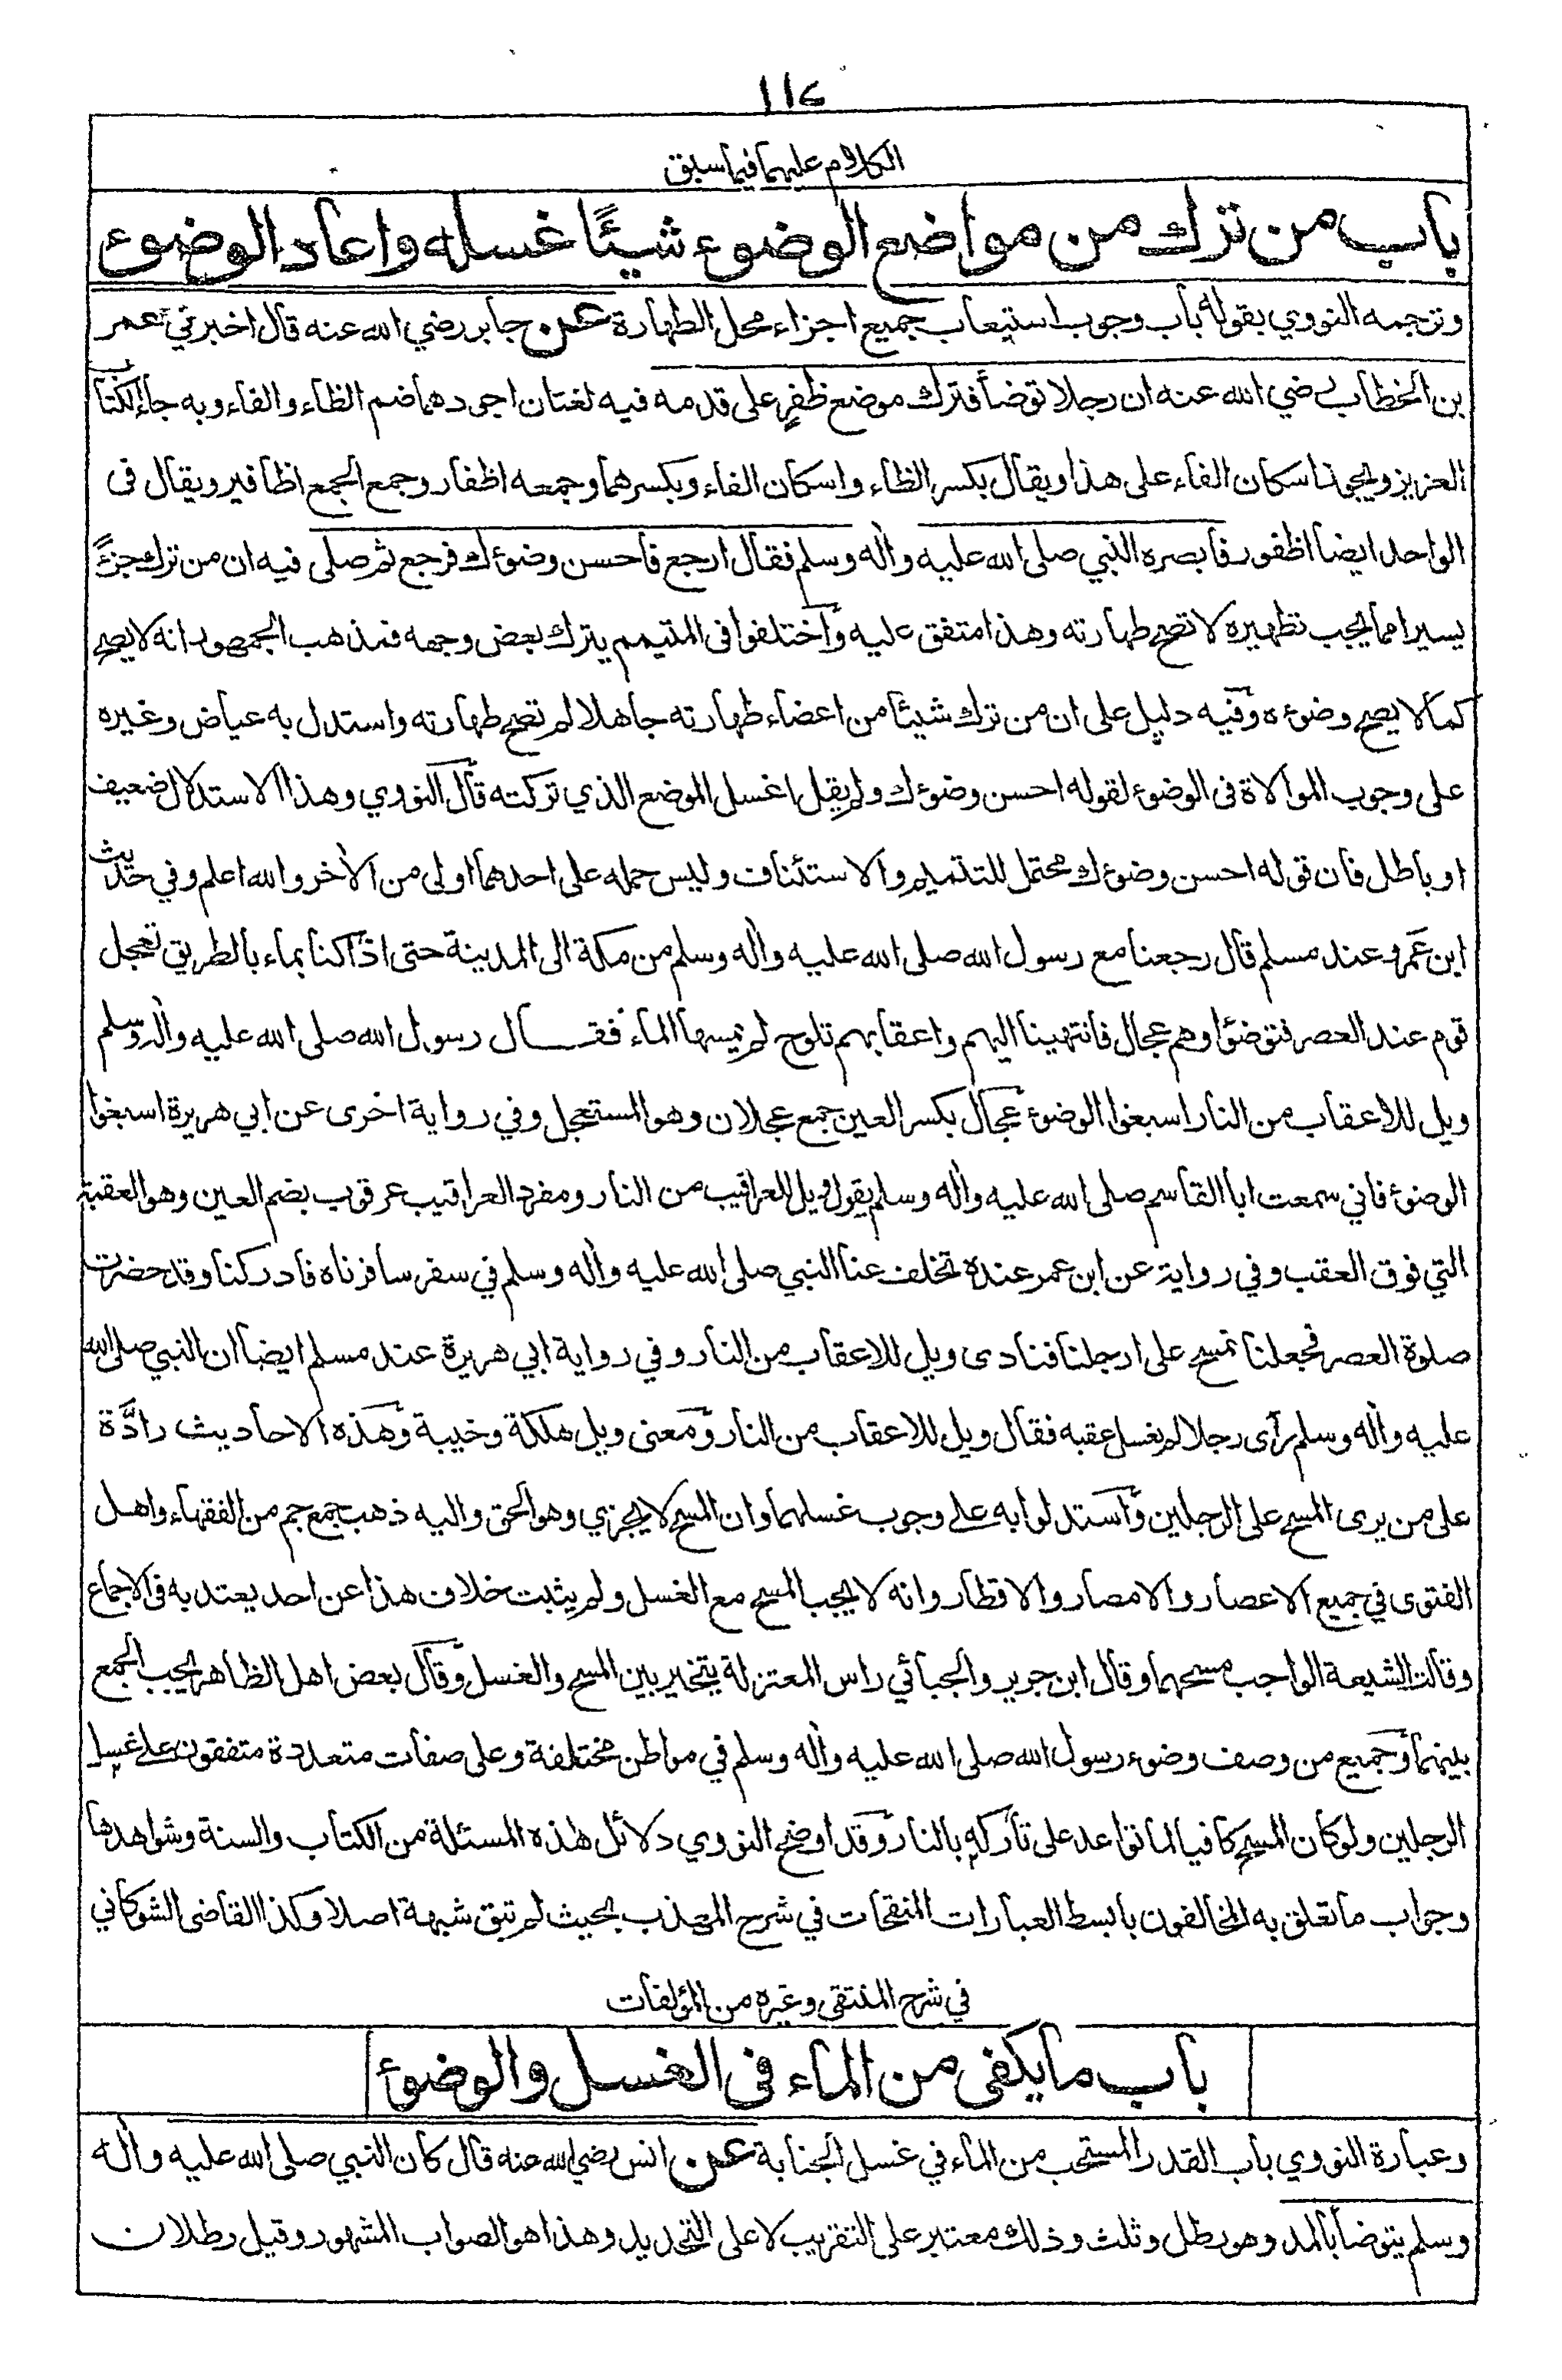 ١١٤
الكلام عليهما فيما سبق
باب من ترك من مواضع الوضوء شيئًا غسله واعاد الوضوء
وترجمه النووي بقوله باب وجوب استيعاب جميع اجزاء محل الطهارة عن جابر رضي الله عنه قال اخبرني عمر
بن الخطاب رضي الله عنه ان رجلا توضأ فترك موضع ظفرٍ على قدمه فيه لغتان اجودهما ضم الظاء والفاء وبه جاء الكتاب
العزيز ويجوز اسكان الفاء على هذا ويقال بكسر الظاء واسكان الفاء وبكسرهما وجمعه اظفار وجمع الجمع اظافير ويقال فى
الواحد ايضا اظفور فابصره النبي صلى الله عليه واٰله وسلم فقال ارجع فاحسن وضوءك فرجع ثم صلى فيه ان من ترك جزءً
يسيرا مما يجب تطهيره لا تصح طهارته وهذا متفق عليه واختلفوا فى المتيمم يترك بعض وجهه فمذهب الجمهور انه لا يصح
كما لا يصح وضوءه وفيه دليل على ان من ترك شيئا من اعضاء طهارته جاهلا لم تصح طهارته واستدل به عياض وغيره
على وجوب الموالاة فى الوضوء لقوله احسن وضوءك ولم يقل اغسل الموضع الذي تركته قال النووي وهذا الاستدلال ضعيف
او باطل فان قوله احسن وضوءك محتمل للتتميم والاستئناف وليس حمله على احدهما اولى من الاٰخر والله اعلم وفي حديث
ابن عَمرو عند مسلم قال رجعنا مع رسول الله صلى الله عليه واٰله وسلم من مكة الى المدينة حتى اذا كنا بماء بالطريق تعجل
قوم عند العصر فتوضؤا وهم عجال فانتهينا اليهم واعقابهم تلوح لم يمسها الماء فقــال رسول الله صلى الله عليه واٰله وسلم
ويل للاعقاب من النار اسبغوا الوضوء عجال بكسر العين جمع عجلان وهو المستعجل وفي رواية اخرى عن ابي هريرة اسبغوا
الوضوء فاني سمعت ابا القاسم صلى الله عليه واٰله وسلم يقول ويل للعراقيب من النار ومفرد العراقيب عرقوب بضم العين وهو العقبة
التي فوق العقب وفي رواية عن ابن عمر عنده تخلف عنا النبي صلى الله عليه واٰله وسلم في سفر سافرناه فادركنا وقد حضرت
صلوة العصر فجعلنا نمسح على ارجلنا فنادى ويل للاعقاب من النار وفي رواية ابي هريرة عند مسلم ايضا ان النبي صلى الله
عليه واٰله وسلم رآى رجلا لم يغسل عقبه فقال ويل للاعقاب من النار ومعنى ويل هلكة وخيبة وهذه الاحاديث رادَّة
على من يرى المسح على الرجلين واستدلوا به على وجوب غسلهما وان المسح لا يجزي وهو الحق واليه ذهب جمع جم من الفقهاء واهل
الفتوى في جميع الاعصار والامصار والاقطار وانه لا يجب المسح مع الغسل ولم يثبت خلاف هذا عن احد يعتد به فى الاجماع
وقالت الشيعة الواجب مسحهما وقال ابن جرير والجبائي راس المعتزلة يتخير بين المسح والغسل وقال بعض اهل الظاهر يجب الجمع
بينهما وجميع من وصف وضوء رسول الله صلى الله عليه واٰله وسلم في مواطن مختلفة وعلى صفات متعددة متفقون على غسل
الرجلين ولو كان المسح كافيا لما تواعد على تاركه بالنار وقد اوضح النووي دلائل هٰذه المسئلة من الكتاب والسنة وشواهدها
وجواب ما تعلق به المخالفون بابسط العبارات المنقحات في شرح المهذب بحيث لم تبق شبهة اصلا وكذا القاضى الشوكاني
في شرح المنتقى وغيره من المؤلفات
باب ما يكفى من الماء فى الغسل والوضوء
وعبارة النووي باب القدر المستحب من الماء في غسل الجنابة عن انس رضي الله عنه قال كان النبي صلى الله عليه واٰله
وسلم يتوضأ بالمد وهو رطل وثلث وذلك معتبر على التقريب لا على التحديد وهذا هو الصواب المشهور وقيل رطلان